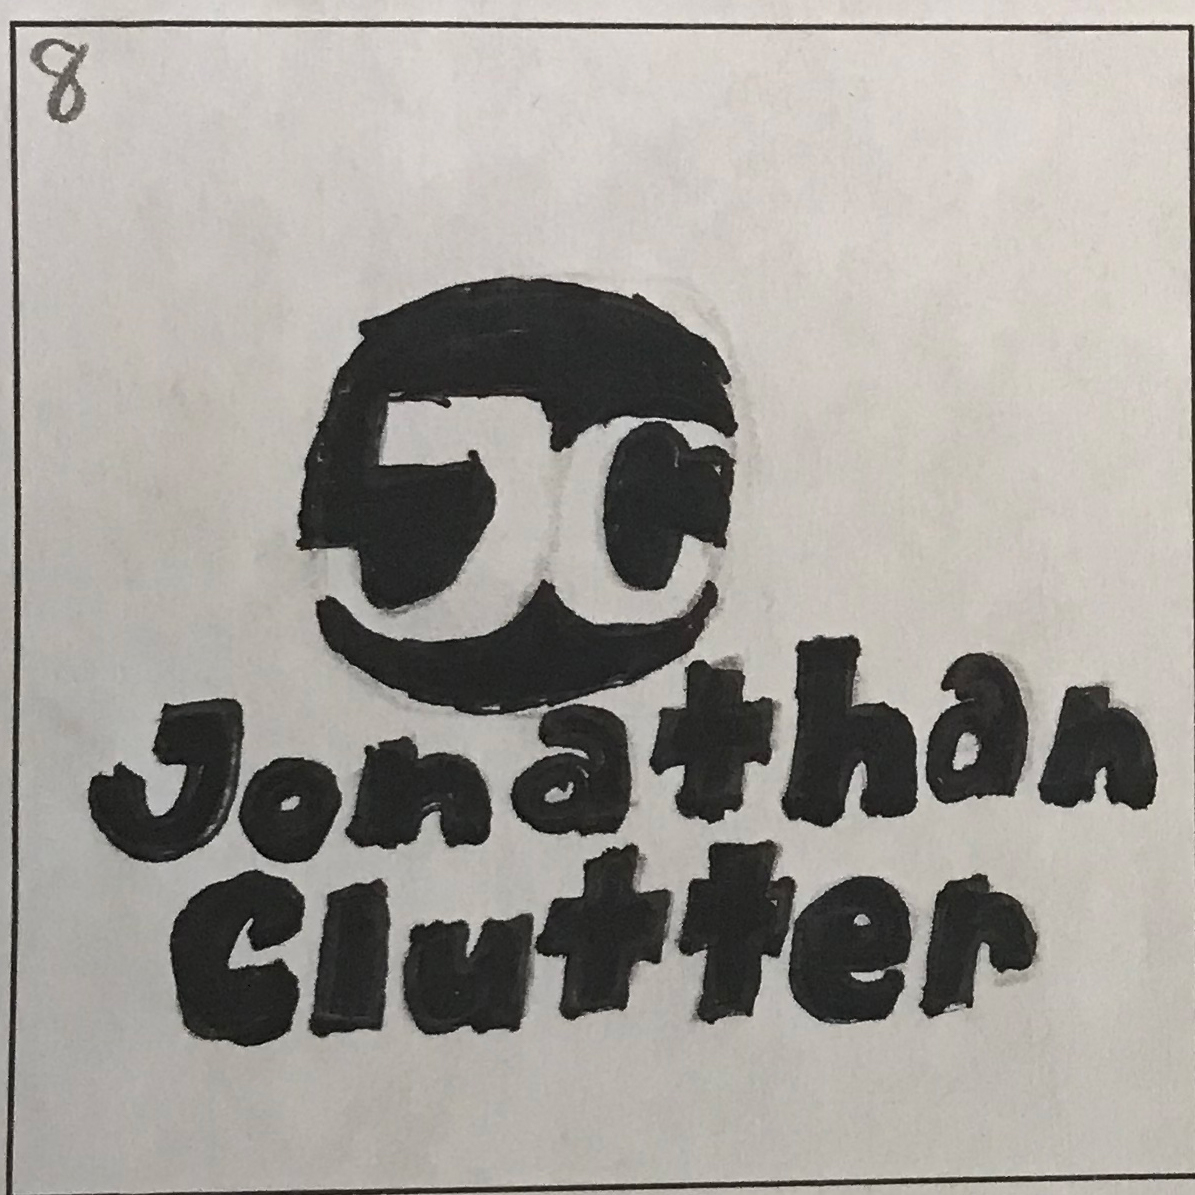 8
JC
Jonathan
Clutter